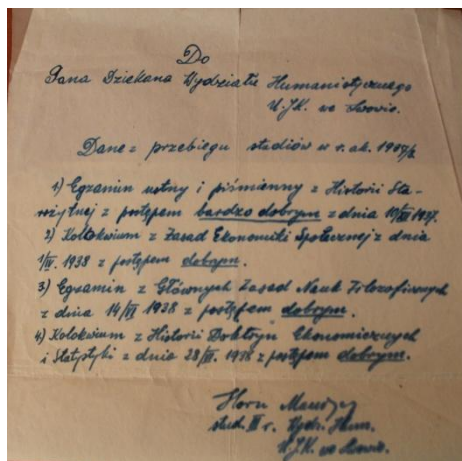 Do
Pana Dziekana Wydziału Humanistycznego
U.J.K. we Lwowie.
Dane z przebiegu studiów w r. ak. 1937/8.
1) Egzamin ustny i piśmienny z Historii Sta-
rożytnej z postępem bardzo dobrym z dnia 1937.
2) Kolokwium z Zasad Ekonomiki Społecznej z dnia
1/IV. 1938 z postępem dobrym.
3) Egzamin z Głównych Zasad Nauk Filozoficznych
z dnia 14/VI 1938 z postępem dobrym.
4) Kolokwium z Historii Doktryn Ekonomicznych
i Statystyki z dnia 1938 z postępem dobrym.
Horn Maurycy
stud. r. Wydz. Hum.
U.J.K. we Lwowie.